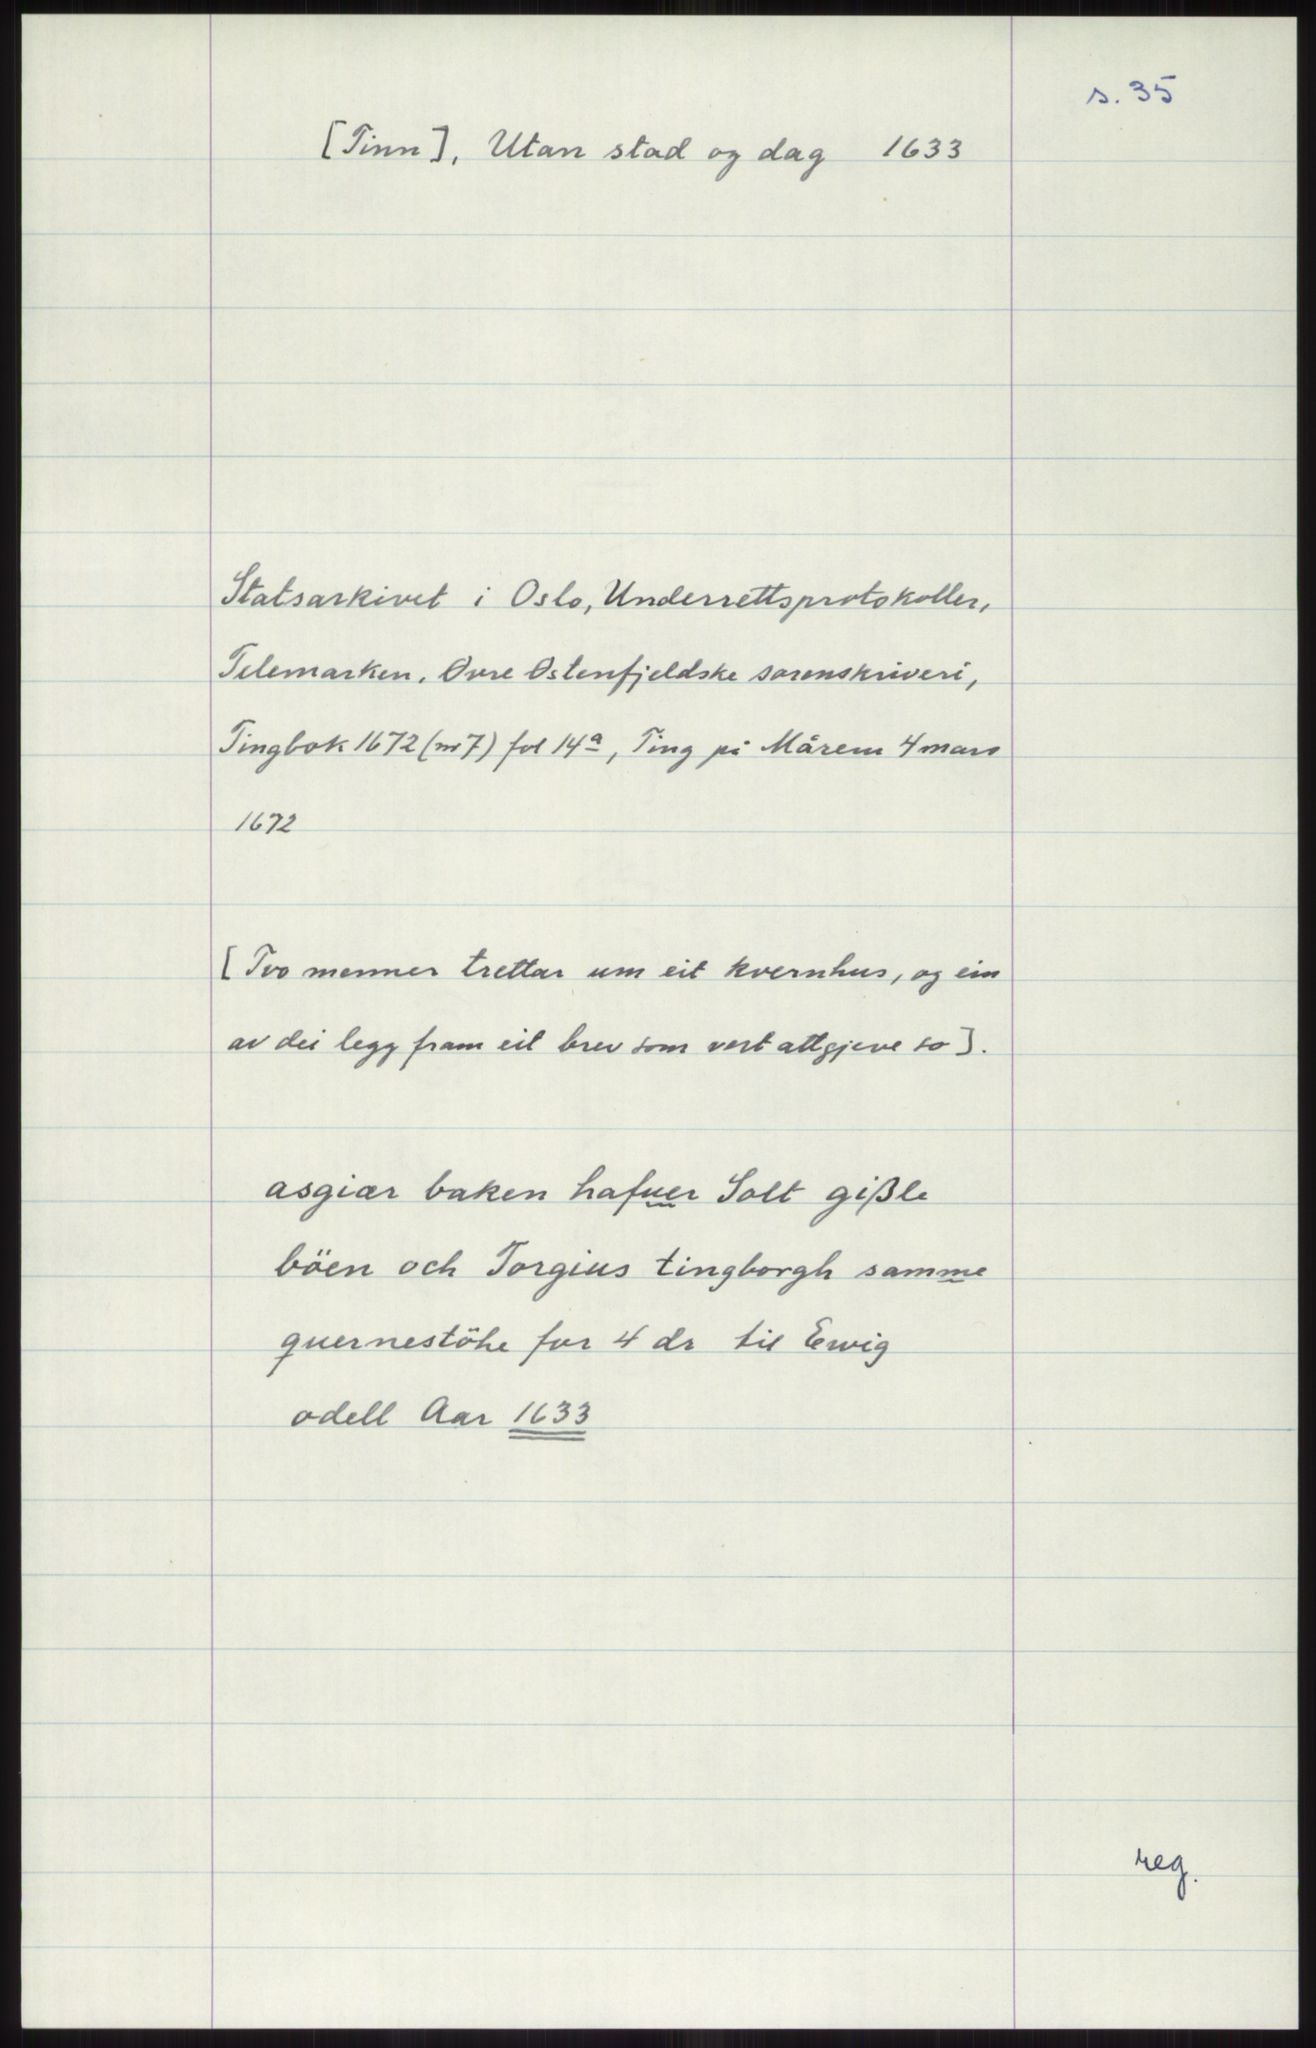 s. 35
[Tinn], Utan stad og dag 1633
Statsarkivet i Oslo, Underrettsprotokoller,
Telemarken, Øvre Østenfjeldske sorenskriveri,
Tingbok 1672 (nr 7) fol 14a, Ting på Mårem 4 mars
1672
[Tvo menner trettar um eit kvernhus, og ein
av dei legg fram eit brev som vert attgjeve so].
asgiær baken hafuer Solt gißle
böen och Torgius tingborgh samme
quernestöhe for 4 dr til Ewig
odell Aar 1633
reg.